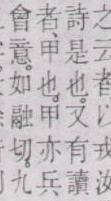 之云者以戎
詩是也。又有讀
者、甲也。甲亦兵
會意。如融切。九